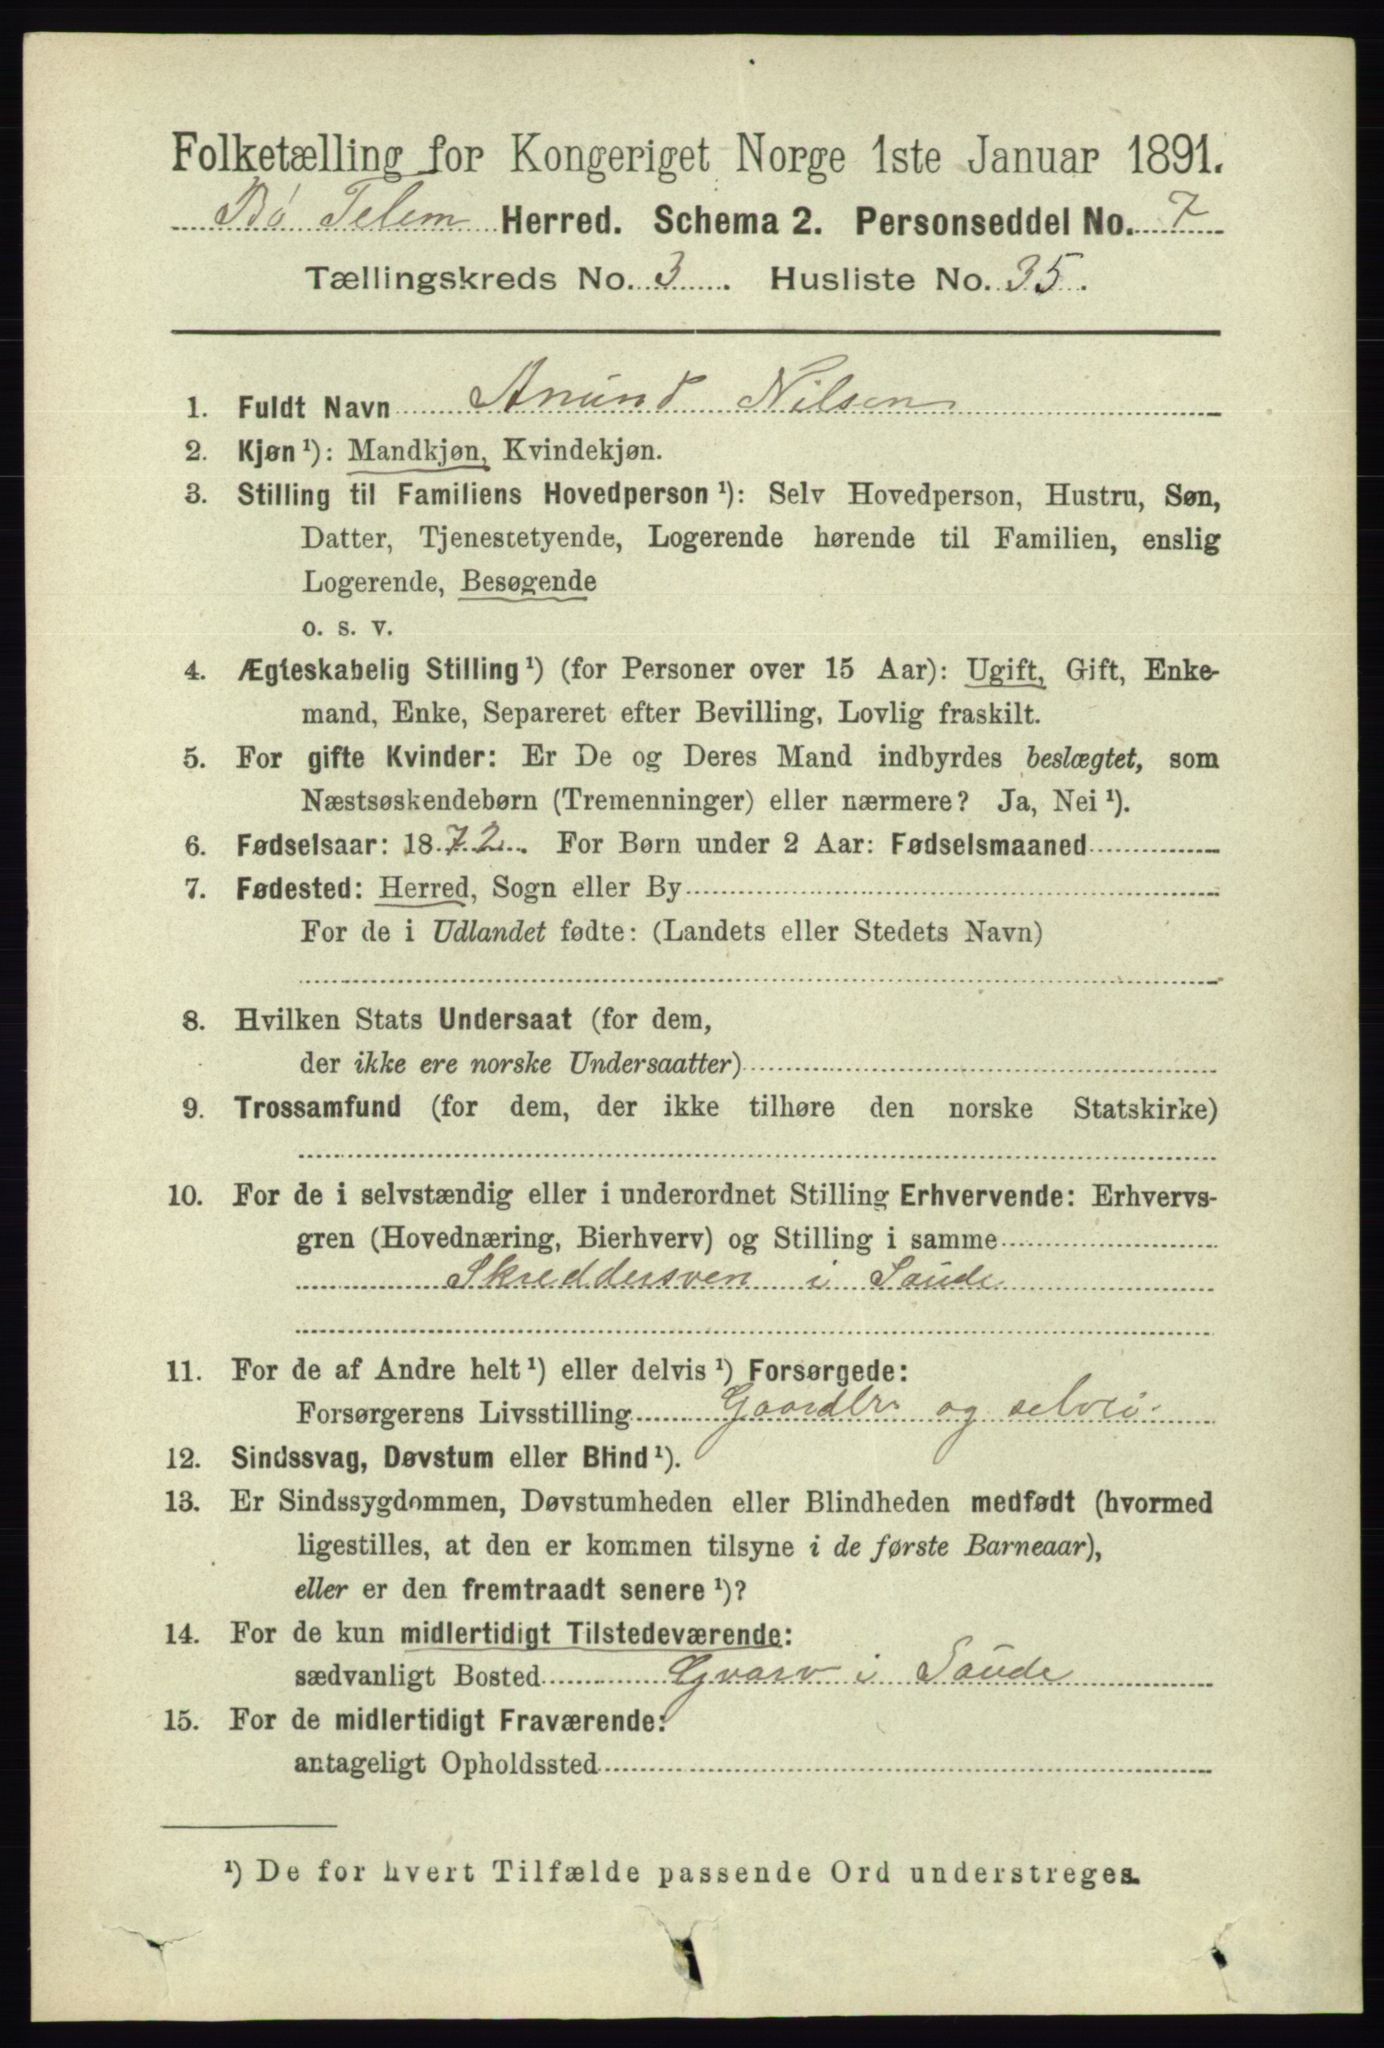 Folketælling for Kongeriget Norge 1ste Januar 1891.
Bø Telem Herred. Schema 2. Personseddel No. 7
Tællingskreds No. 3. Husliste No. 35.
1. Fuldt Navn Anund Nilsen
2. Kjøn ¹): Mandkjøn, Kvindekjøn.
3. Stilling til Familiens Hovedperson ¹): Selv Hovedperson, Hustru, Søn,
Datter, Tjenestetyende, Logerende hørende til Familien, enslig
Logerende, Besøgende
o. s. v.
4. Ægteskabelig Stilling ¹) (for Personer over 15 Aar): Ugift, Gift, Enke-
mand, Enke, Separeret efter Bevilling, Lovlig fraskilt.
5. For gifte Kvinder: Er De og Deres Mand indbyrdes beslægtet, som
Næstsøskendebørn (Tremenninger) eller nærmere? Ja, Nei ¹).
6. Fødselsaar: 1872. For Børn under 2 Aar: Fødselsmaaned
7. Fødested: Herred, Sogn eller By
For de i Udlandet fødte: (Landets eller Stedets Navn)
8. Hvilken Stats Undersaat (for dem,
der ikke ere norske Undersaatter)
9. Trossamfund (for dem, der ikke tilhøre den norske Statskirke)
10. For de i selvstændig eller i underordnet Stilling Erhvervende: Erhvervs-
gren (Hovednæring, Bierhverv) og Stilling i samme
Skreddersven i Saude
11. For de af Andre helt ¹) eller delvis ¹) Forsørgede:
Forsørgerens Livsstilling Gaardbr. og selvei.
12. Sindssvag, Døvstum eller Blind ¹).
13. Er Sindssygdommen, Døvstumheden eller Blindheden medfødt (hvormed
ligestilles, at den er kommen tilsyne i de første Barneaar),
eller er den fremtraadt senere ¹)?
14. For de kun midlertidigt Tilstedeværende:
sædvanligt Bosted Gvarv i Saude
15. For de midlertidigt Fraværende:
antageligt Opholdssted
¹) De for hvert Tilfælde passende Ord understreges.